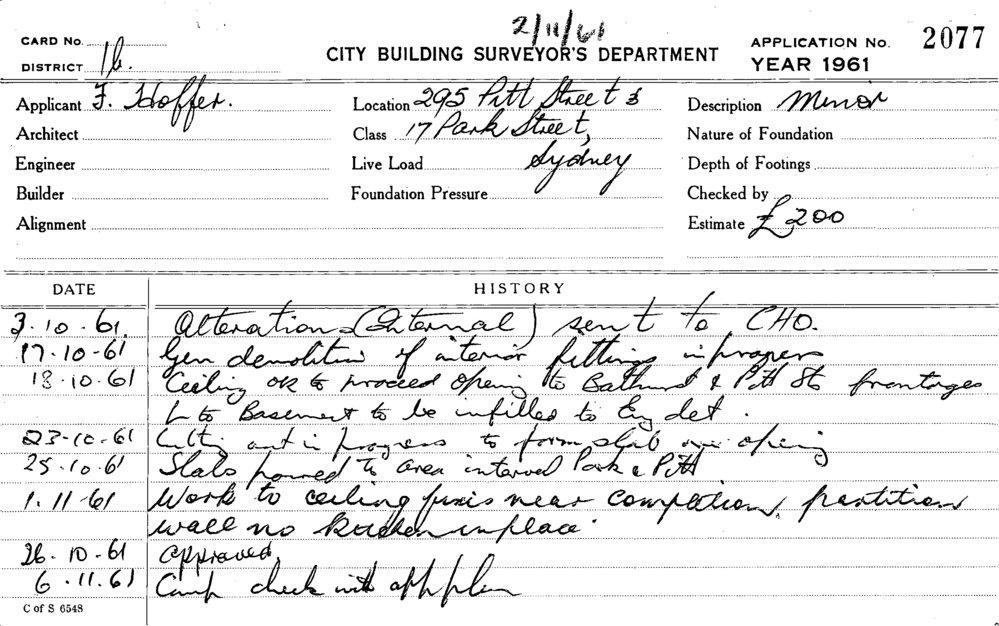 2/11/61
CARD No.
CITY BUILDING SURVEYOR'S DEPARTMENT
APPLICATION No. 2077
DISTRICT 1b.
YEAR 1961
Applicant F. Hoffer. Location 295 Pitt Street & Description Minor
Architect Class 17 Park Street, Nature of Foundation
Engineer Live Load Sydney Depth of Footings
Builder Foundation Pressure Checked by
Alignment Estimate £200
DATE HISTORY
3.10.61. Alterations (Internal) sent to CHO.
17-10-61 Gen demolition of interior fittings in progress
18-10.61 Ceiling OK to proceed opening to Bathurst & Pitt Sts frontages
to Basement to be infilled to Eng det.
23-10-61 Cutting out in progress to form slab over opening
25.10.61 Slabs poured to area Park & Pitt
1.11-61 Work to ceiling near completion, partition
wall no in place.
26.10.61 Approved.
6.11.61 Comp check with app plan
C of S 6548